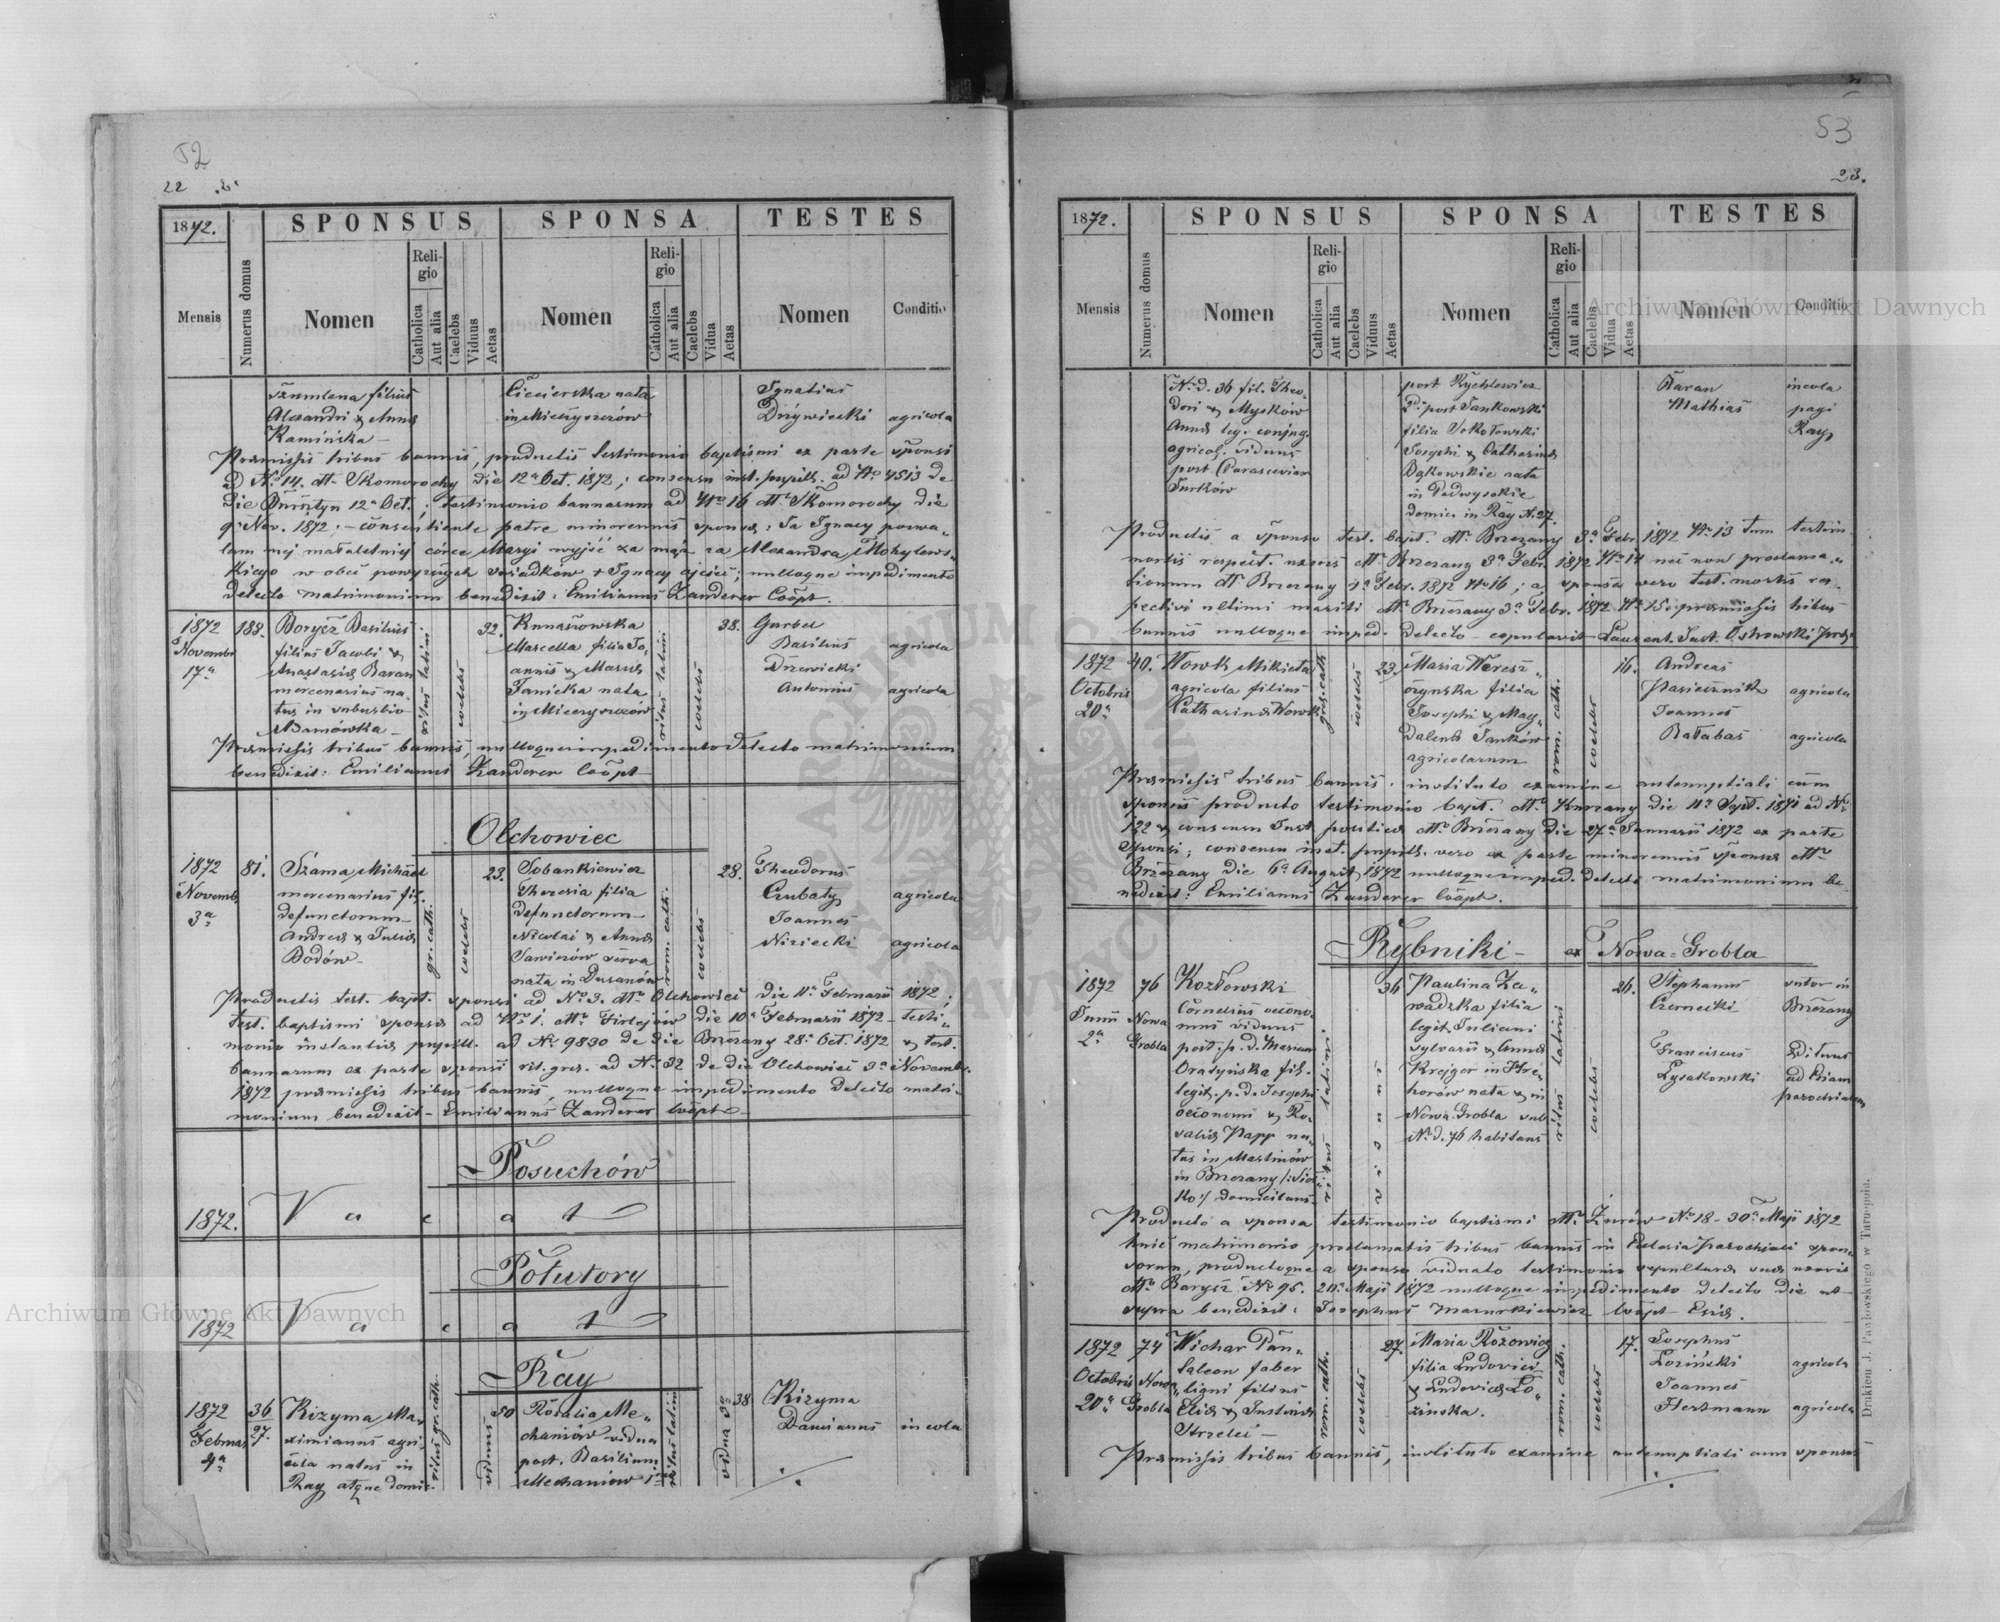 52
22
1872.
SPONSUS
SPONSA
TESTES
Mensis
Numerus domus
Nomen
Religio
Catholica
Aut alia
Caelebs
Viduus
Aetas
Nomen
Religio
Catholica
Aut alia
Caelebs
Vidua
Aetas
Nomen
Conditio
filius
Alexandri & Anna
Kamińska
nata
in Mieczyszczów
Ignatius
Drzywiecki agricola
Praemissis tribus bannis, productis testimonio baptismi ex parte sponsi
d. No 14. dto Skomorochy die 12a Oct. 1872; consensu inst. pupill. ad No 4513 de
die Bursztyn 12a Oct.; testimonio bannorum ad Nro 16 dto Skomorochy die
9a Nov. 1872. – consentiente patre minorennis sponsa: Ja Ignacy pozwa-
lam mej małoletniej córce Maryi wyjść za mąż za Alexandra
w obec powyższych świadków + Ignacy ojciec; nulloque impedimento
detecto matrimonium benedixit: Emilianus Zanderer Coopt.
1872
Novembr
17a
188.
Borycz Basilius
filius Jacobi &
Anastasia Baran
mercenarius na-
tus in suburbio
Adamówka
ritus latini
coelebs
32.
Kunaszowska
Marcella filia Jo-
annis & Maria
Janicka nata
in Mieczyszczów
ritus latini
coelebs
38.
Garbed
Basilius agricola
Drzewiecki
Antonius agricola
Praemissis tribus bannis, nulloque impedimento detecto matrimonium
benedixit: Emilianus Zanderer Coopt
Olchowiec
1872
Novemb
3a
81.
Szama Michael
mercenarius fil.
defunctorum
Andrea & Julia
Bodów
gr. cath.
coelebs
23.
Sobankiewicz
Theresia filia
defunctorum
Nicolai & Anna
Sawiców serva
nata in Dusanów
rom. cath.
coelebs
28.
Theodorus
Czubaty agricola
Joannes
Niziecki agricola
Productis test. bapt. sponsi ad No 3. dto Olchowiec die 11a Februarii 1872;
test. baptismi sponsa ad Nro 1. dto Firlejów die 10a Februarii 1872 – testi-
monio instantia pupill. ad No 9830 de die Brzezany 28a Oct. 1872 & test.
bannorum ex parte sponsi rit. graec. ad No 32 de die Olchowiec 3a Novembr.
1872 praemissis tribus bannis, nulloque impedimento detecto matri-
monium benedixit – Emilianus Zanderer Coopt
Posuchów
1872. Vacat
Potutory
1872 Vacat
Ray
1872
Februar
4a
36
27.
Kizyma Ma-
ximianus agri-
cola natus in
Ray atque domi-
ritus gr. cath.
viduus
50
Rosalia Me-
chaniów vidua
post. Basilium
Mechaniów
ritus latini
vidua
38.
Kizyma
Damianus incola
53
23.
1872.
SPONSUS
SPONSA
TESTES
Mensis
Numerus domus
Nomen
Religio
Catholica
Aut alia
Caelebs
Viduus
Aetas
Nomen
Religio
Catholica
Aut alia
Caelebs
Vidua
Aetas
Nomen
Conditio
No d. 36 fil. Theo-
dori & Mysków
Anna leg. conjug.
agricol. viduus
post Parascevian
Turków
post Rychlewicz
2do post Jankowski
filia Sokołowski
Josephi & Catharina
Bąkowskie nata
in Podwysokie
domic. in Ray N. 27.
Baran
Mathias
incola
pagi
Ray
Productis a sponso test. bapt. dto Brzezany 3a Febr. 1872 Nro 13 tum testim
mortis respect. uxoris dto Brzezany 3a Febr. 1872 Nro 14 nec non proclama-
tionum dto Brzezany 4a Febr. 1872 Nro 16; a sponsa vero test. mortis res-
pectivi ultimi mariti dto Brzezany 3a Febr. 1872 No 15; praemissis tribus
bannis nulloque imped. detecto – copulavit Laurent. Just. Ostrowski
1872
Octobris
20a
40.
Wowk Mikieta
agricola filius
Catharina Wowk
graec. cath
coelebs
23.
Maria Weresz-
czynska filia
Josephi & Mag-
dalena Janków
agricolarum
rom. cath.
coelebs
16.
Andreas
Pasiecznik agricola
Joannes
Bałabas agricola
Praemissis tribus bannis, instituto examine antenuptiali cum
sponsis producto testimonio bapt. dto Brzezany die 11a Sept. 1871 ad No
122 & consensu Inst. politica dto Brzezany die 27a Januarii 1872 ex parte
sponsi; consensu inst. pupill. vero ex parte minorennis sponsa dto
Brzezany die 6a August 1872 nulloque imped. detecto matrimonium be-
nedixit: Emilianus Zanderer Coopt.
Rybniki – et Nowa-Grobla
1872
Junii
2a
76
Nowa
Grobla
Kozłowski
Cornelius oecono-
mus viduus
post. p. d. Mariam
Oratyńska fil.
legit. p. d. Josephi
oeconomi & Ro-
salia Papp na-
tus in Martinów
in Brzezany
domicilans
ritus latini
viduus
36
Paulina Za-
wadzka filia
legit. Juliani
sylvarii & Anna
Krejger in Hre-
horów nata & in
Nowa Grobla sub
No d. 76 habitans
ritus latini
coelebs
26.
Stephanus
Czernecki
sutor in
Brzezany
Franciscus
Łysakowski
aedituus
ad Eccam
parochialem
Producto a sponsa testimonio baptismi dto Żurów No 18 – 30a Maji 1872
huic matrimonio proclamatis tribus bannis in Eclesia parochiali spon-
sorum, productoque a sponso viduato testimonio sepultura sua uxoris
dto Barysz No 95. 20a Maji 1872 nulloque impedimento detecto die ut
supra benedixit: Josephus Mazurkiewicz Coopt
1872
Octobris
20a
74
Nowa
Grobla
Wichar Pan-
taleon faber
ligni filius
Elia & Justina
Strzelci
rom. cath.
coelebs
27.
Maria Rozowicz
filia Ludovici
& Ludovica Ło-
zinska.
rom. cath.
coelebs
17.
Josephus
Łoziński agricola
Joannes
Herzmann agricola
Praemissis tribus bannis, instituto examine antenuptiali cum sponsis
Drukiem J. Pawłowskiego w Tarnopolu.
Archiwum Główne Akt Dawnych
Archiwum Główne Akt Dawnych